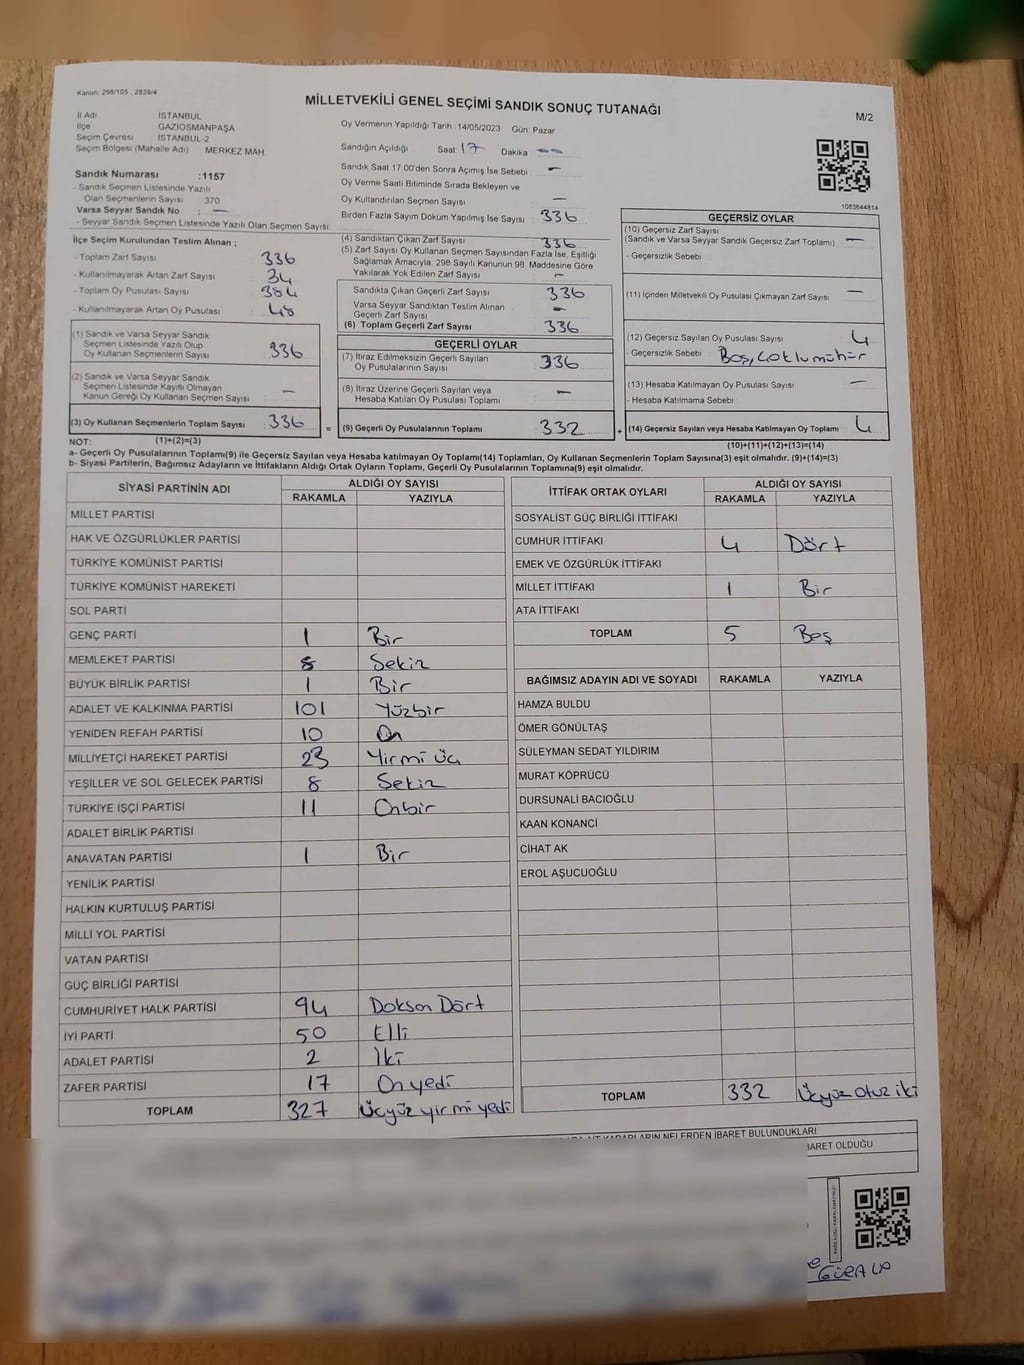 Kanun: 298/105 , 2839/4
MİLLETVEKİLİ GENEL SEÇİMİ SANDIK SONUÇ TUTANAĞI
M/2
İl Adı İSTANBUL
İlçe GAZİOSMANPAŞA
Seçim Çevresi İSTANBUL-2
Seçim Bölgesi (Mahalle Adı) MERKEZ MAH.
Oy Vermenin Yapıldığı Tarih :14/05/2023 Gün: Pazar
Sandığın Açıldığı Saat: 17 Dakika 00
Sandık Saat 17:00'den Sonra Açımış İse Sebebi : —
Oy Verme Saati Bitiminde Sırada Bekleyen ve
Oy Kullandırılan Seçmen Sayısı —
Birden Fazla Sayım Döküm Yapılmış İse Sayısı 336
Sandık Numarası :1157
- Sandık Seçmen Listesinde Yazılı
Olan Seçmenlerin Sayısı 370
Varsa Seyyar Sandık No : —
- Seyyar Sandık Seçmen Listesinde Yazılı Olan Seçmen Sayısı
1083644814
İlçe Seçim Kurulundan Teslim Alınan ;
- Toplam Zarf Sayısı 336
- Kullanılmayarak Artan Zarf Sayısı 34
- Toplam Oy Pusulası Sayısı 384
- Kullanılmayarak Artan Oy Pusulası 48
(1) Sandık ve Varsa Seyyar Sandık
Seçmen Listesinde Yazılı Olup
Oy Kullanan Seçmenlerin Sayısı 336
(2) Sandık ve Varsa Seyyar Sandık
Seçmen Listesinde Kayıtlı Olmayan
Kanun Gereği Oy Kullanan Seçmen Sayısı —
(3) Oy Kullanan Seçmenlerin Toplam Sayısı : 336
(4) Sandıktan Çıkan Zarf Sayısı 336
(5) Zarf Sayısı Oy Kullanan Seçmen Sayısından Fazla İse, Eşitliği
Sağlamak Amacıyla; 298 Sayılı Kanunun 98. Maddesine Göre
Yakılarak Yok Edilen Zarf Sayısı —
Sandıkta Çıkan Geçerli Zarf Sayısı 336
Varsa Seyyar Sandıktan Teslim Alınan
Geçerli Zarf Sayısı —
(6) Toplam Geçerli Zarf Sayısı 336
GEÇERLİ OYLAR
(7) İtiraz Edilmeksizin Geçerli Sayılan
Oy Pusulalarının Sayısı 336
(8) İtiraz Üzerine Geçerli Sayılan veya
Hesaba Katılan Oy Pusulası Toplamı —
= (9) Geçerli Oy Pusulalarının Toplamı 332
GEÇERSİZ OYLAR
(10) Geçersiz Zarf Sayısı
(Sandık ve Varsa Seyyar Sandık Geçersiz Zarf Toplamı) —
- Geçersizlik Sebebi
(11) İçinden Milletvekili Oy Pusulası Çıkmayan Zarf Sayısı —
(12) Geçersiz Sayılan Oy Pusulası Sayısı 4
- Geçersizlik Sebebi Boş, çoklumühür
(13) Hesaba Katılmayan Oy Pusulası Sayısı —
- Hesaba Katılmama Sebebi
+ (14) Geçersiz Sayılan veya Hesaba Katılmayan Oy Toplamı 4
NOT: (1)+(2)=(3)
(10)+(11)+(12)+(13)=(14)
a- Geçerli Oy Pusulalarının Toplamı(9) ile Geçersiz Sayılan veya Hesaba katılmayan Oy Toplamı(14) Toplamları, Oy Kullanan Seçmenlerin Toplam Sayısına(3) eşit olmalıdır. (9)+(14)=(3)
b- Siyasi Partilerin, Bağımsız Adayların ve İttifakların Aldığı Ortak Oyların Toplamı, Geçerli Oy Pusulalarının Toplamına(9) eşit olmalıdır.
SİYASİ PARTİNİN ADI ALDIĞI OY SAYISI
RAKAMLA YAZIYLA
MİLLET PARTİSİ
HAK VE ÖZGÜRLÜKLER PARTİSİ
TÜRKİYE KOMÜNİST PARTİSİ
TÜRKİYE KOMÜNİST HAREKETİ
SOL PARTİ
GENÇ PARTİ 1 Bir
MEMLEKET PARTİSİ 8 Sekiz
BÜYÜK BİRLİK PARTİSİ 1 Bir
ADALET VE KALKINMA PARTİSİ 101 Yüzbir
YENİDEN REFAH PARTİSİ 10 On
MİLLİYETÇİ HAREKET PARTİSİ 23 Yirmi üç
YEŞİLLER VE SOL GELECEK PARTİSİ 8 Sekiz
TÜRKİYE İŞÇİ PARTİSİ 11 Onbir
ADALET BİRLİK PARTİSİ
ANAVATAN PARTİSİ 1 Bir
YENİLİK PARTİSİ
HALKIN KURTULUŞ PARTİSİ
MİLLİ YOL PARTİSİ
VATAN PARTİSİ
GÜÇ BİRLİĞİ PARTİSİ
CUMHURİYET HALK PARTİSİ 94 Doksan Dört
İYİ PARTİ 50 Elli
ADALET PARTİSİ 2 İki
ZAFER PARTİSİ 17 Onyedi
TOPLAM 327 Üçyüz yirmi yedi
İTTİFAK ORTAK OYLARI ALDIĞI OY SAYISI
RAKAMLA YAZIYLA
SOSYALİST GÜÇ BİRLİĞİ İTTİFAKI
CUMHUR İTTİFAKI 4 Dört
EMEK VE ÖZGÜRLÜK İTTİFAKI
MİLLET İTTİFAKI 1 Bir
ATA İTTİFAKI
TOPLAM 5 Beş
BAĞIMSIZ ADAYIN ADI VE SOYADI RAKAMLA YAZIYLA
HAMZA BULDU
ÖMER GÖNÜLTAŞ
SÜLEYMAN SEDAT YILDIRIM
MURAT KÖPRÜCÜ
DURSUNALİ BACIOĞLU
KAAN KONANCİ
CİHAT AK
EROL AŞUCUOĞLU
TOPLAM 332 Üçyüz otuz iki
KARARLARIN NELERDEN İBARET BULUNDUKLARI
BARET OLDUĞU